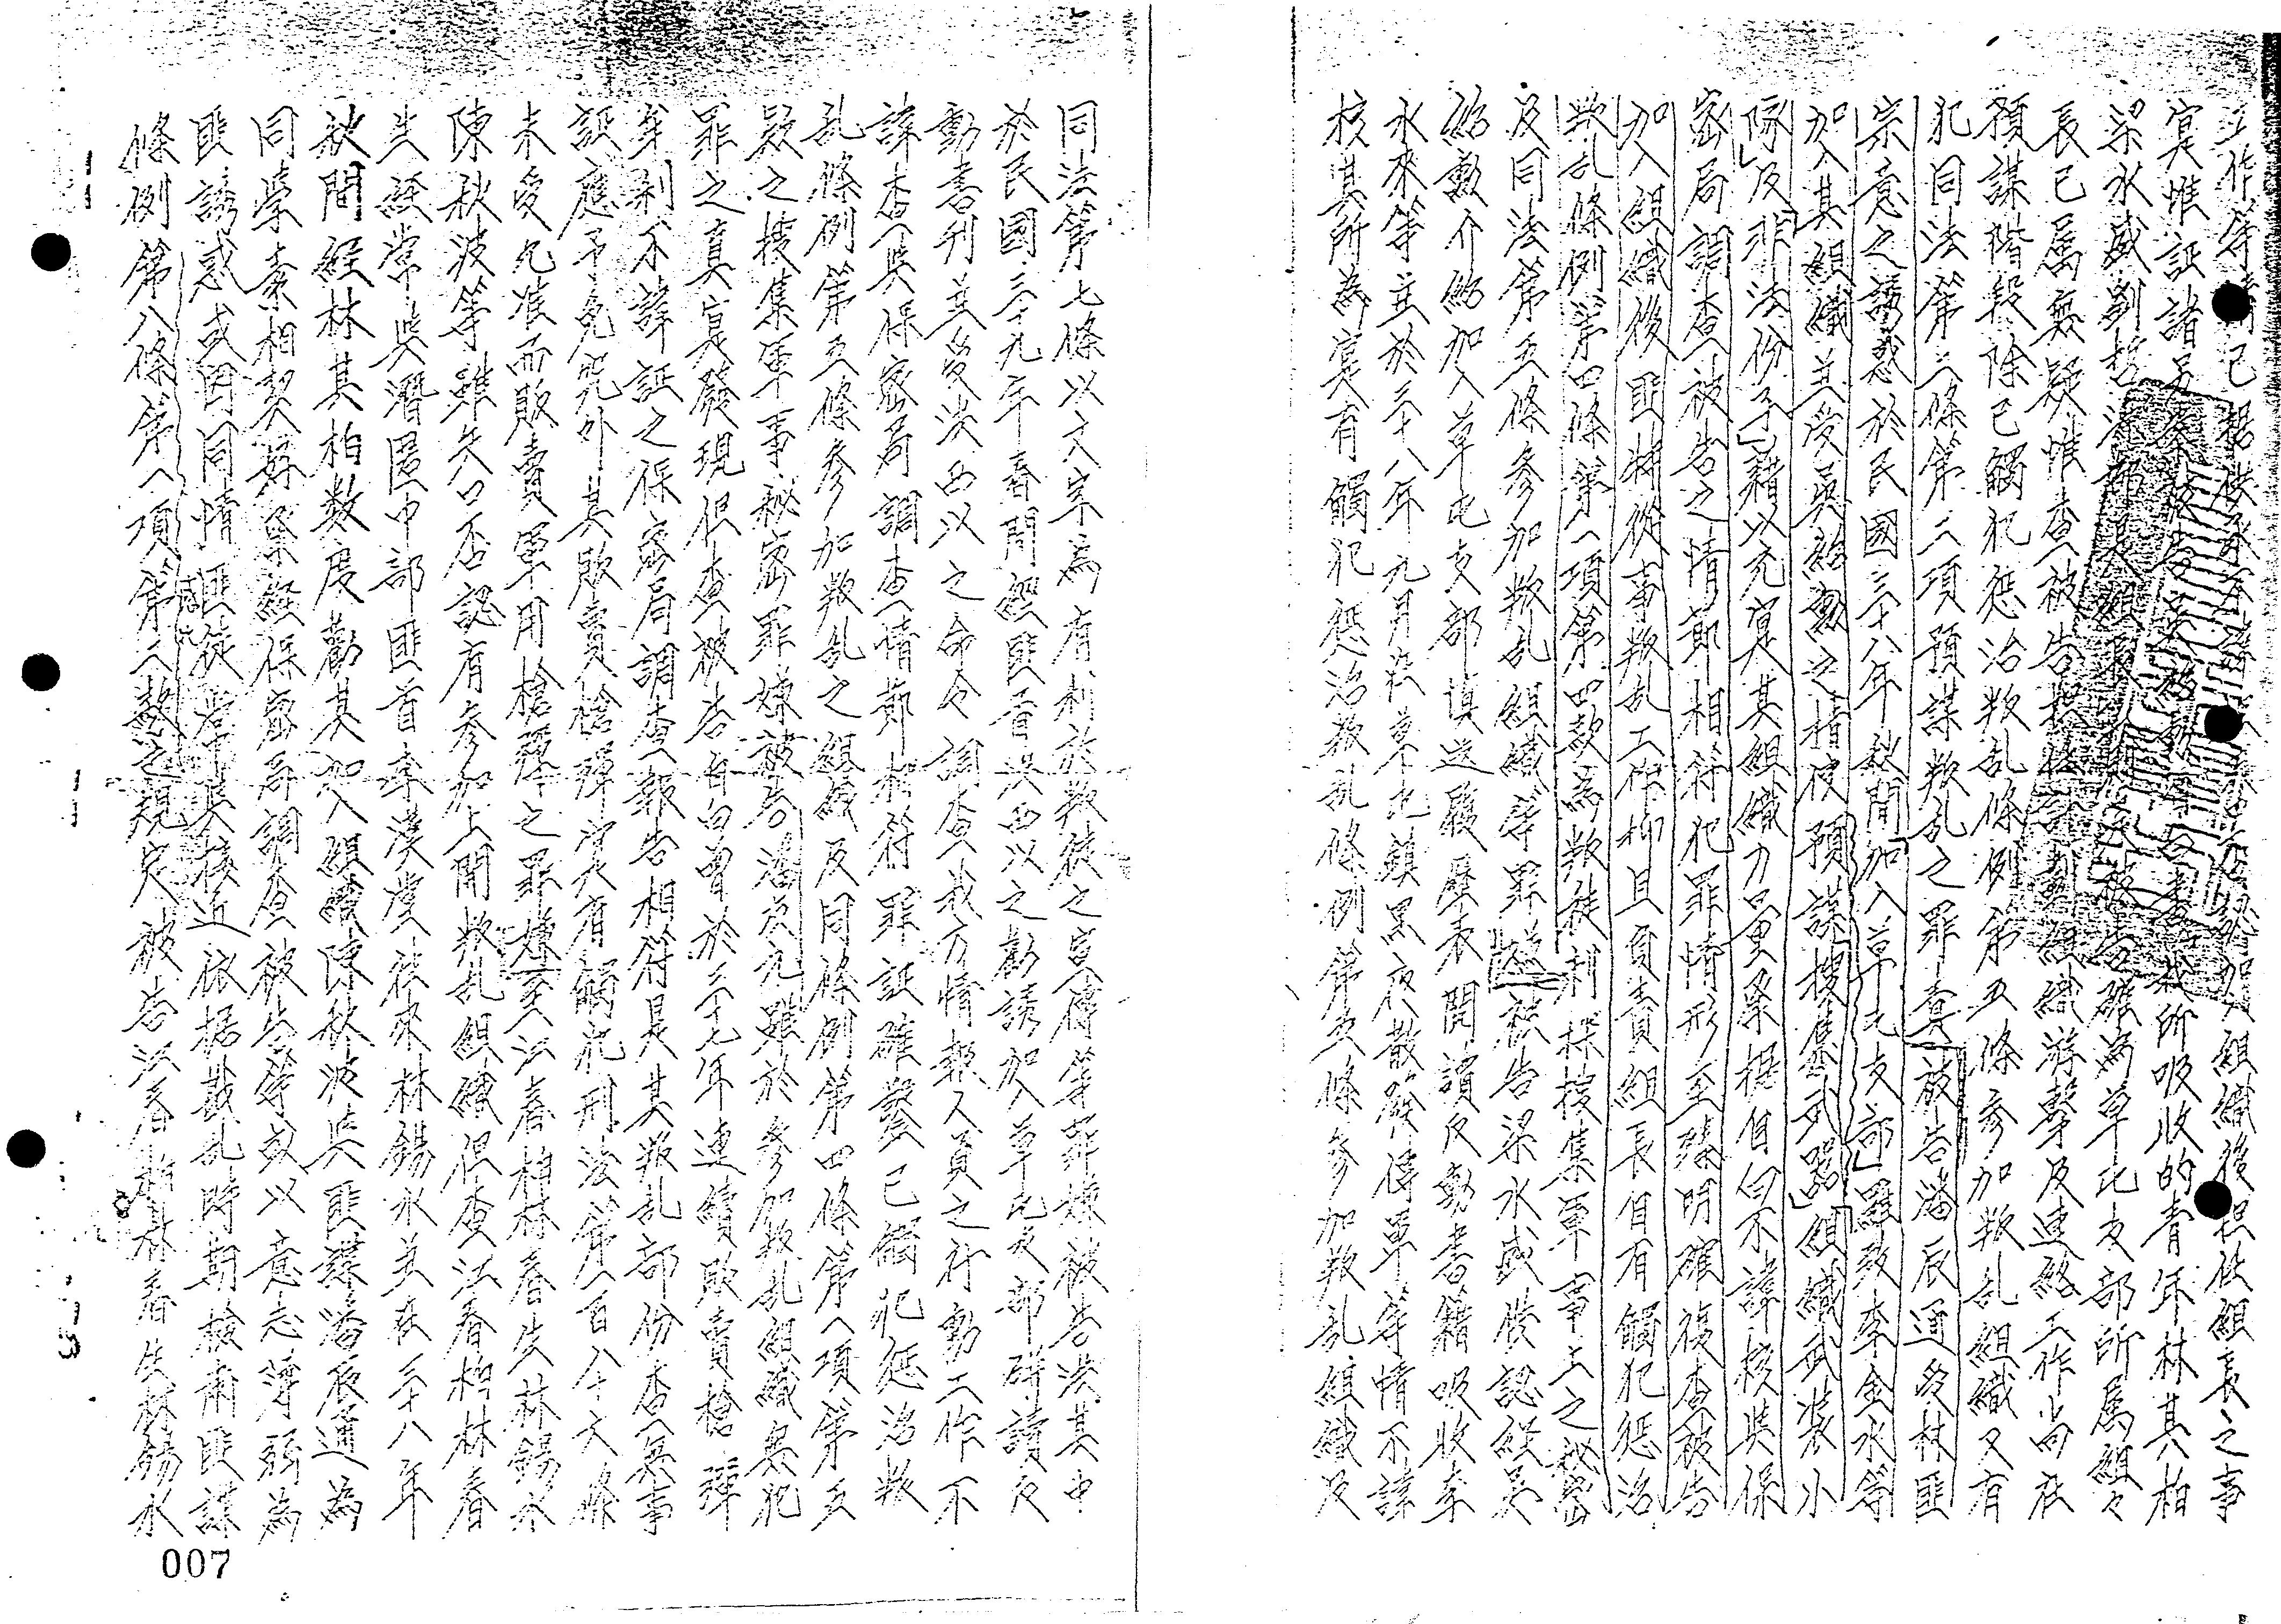 工作等情已據供承不諱
加入組織後担任組長之事
實惟証諸另案被告吳紹勳
所吸收的青年林其八柏
梁水盛劉
被告確為草屯支部所屬組々
長已属無疑惟查被告
組織游擊及連絡工作尚在
預謀階段除已觸犯惩治叛乱條例第五條參加叛乱組織又有
犯同法第二條第二項預謀叛乱之罪責被告潘辰通受林匪
宗意之誘惑於民國三十八年秋間加入草屯支部羅致李金水等
加入其組織並受吳紹勳之指使預謀搜集武器組織武裝小
隊及非法份子藉以充實其組織力量業據自白不諱核與保
密局調查被告之情節相符犯罪情形至臻明確復查被告
加入組織後匪將從事叛乱工作抑且負責組長自有觸犯惩治
叛乱條例第四條第一項第四款為叛徒刺探搜集軍事上之秘密
及同法第五條參加叛乱組織等罪嫌被告梁水盛供認經吳
紹勳介紹加入草屯支部填送履歷表閱讀反動書籍吸收李
水來等並於三十八年九月在草屯鎮黑夜散發傳單等情不諱
核其所為實有觸犯惩治叛乱條例第五條參加叛乱組織及
同法第七條以文字為有利於叛徒之宣傳等罪嫌被告洪其中
於民國三十九年春間經匪酋洪西以之勸誘加入草屯支部研讀反
動書刊並受洪西以之命令調查我方情報人員之行動工作不
諱查與保密局調查情節相符罪証確鑿已觸犯惩治叛
乱條例第五條參加叛乱之組織及同條例第四條第一項第五
款之搜集軍事秘密罪嫌被告潘辰九雖於參加叛乱組織無犯
罪之真實發現但查被告自白曾於三十七年連續販賣槍彈
牟利不諱証之保密局調查報告相符是其叛乱部份查無事
証應予免究外其販賣槍彈首犬有觸犯刑法第一百八十六條
未受允准而販賣軍用槍彈之罪嫌至江春柏林春生林錫水
陳秋波等雖矢口否認有參加上開叛乱組織但查江春柏林春
生經常與潛匿中部匪首李漢堂往來林錫水並在三十八年
秋間經林其柏数度勸其加入組織陳秋波與匪諜潘辰通為
同學素相契好業經保密局調查被告等或以意志薄弱為
匪誘惑或因同情匪徒常與接近依据戡乱時期檢肅匪諜
條例第八條第一項第二款之規定被告江春柏林春生林錫水
007